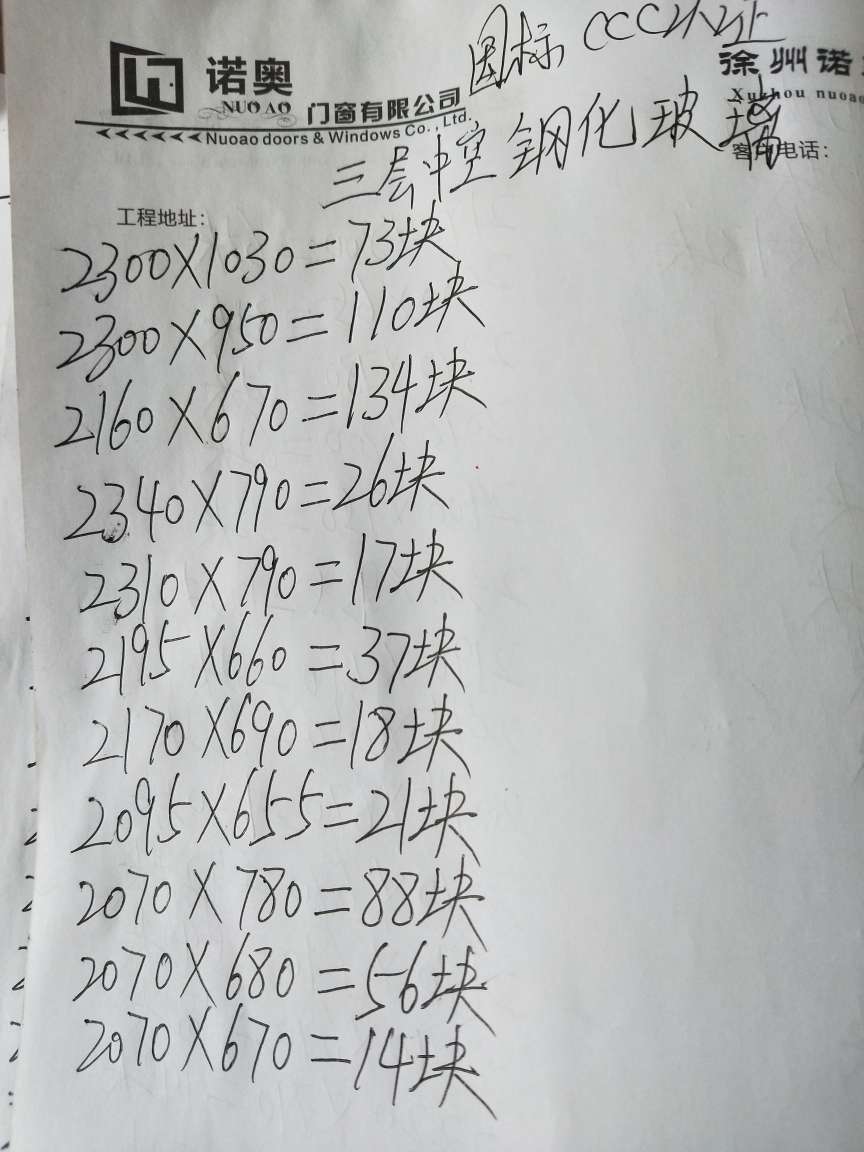 国标 CCC认证
诺奥
NUO AO
门窗有限公司
Nuoao doors & Windows Co., Ltd.
徐州诺
Xuzhou nuoao
三层中空钢化玻璃
客户电话：
工程地址：
2300×1030=73块
2300×950=110块
2160×670=134块
2340×790=26块
2310×790=17块
2195×660=37块
2170×690=18块
2095×655=21块
2070×780=88块
2070×680=56块
2070×670=14块